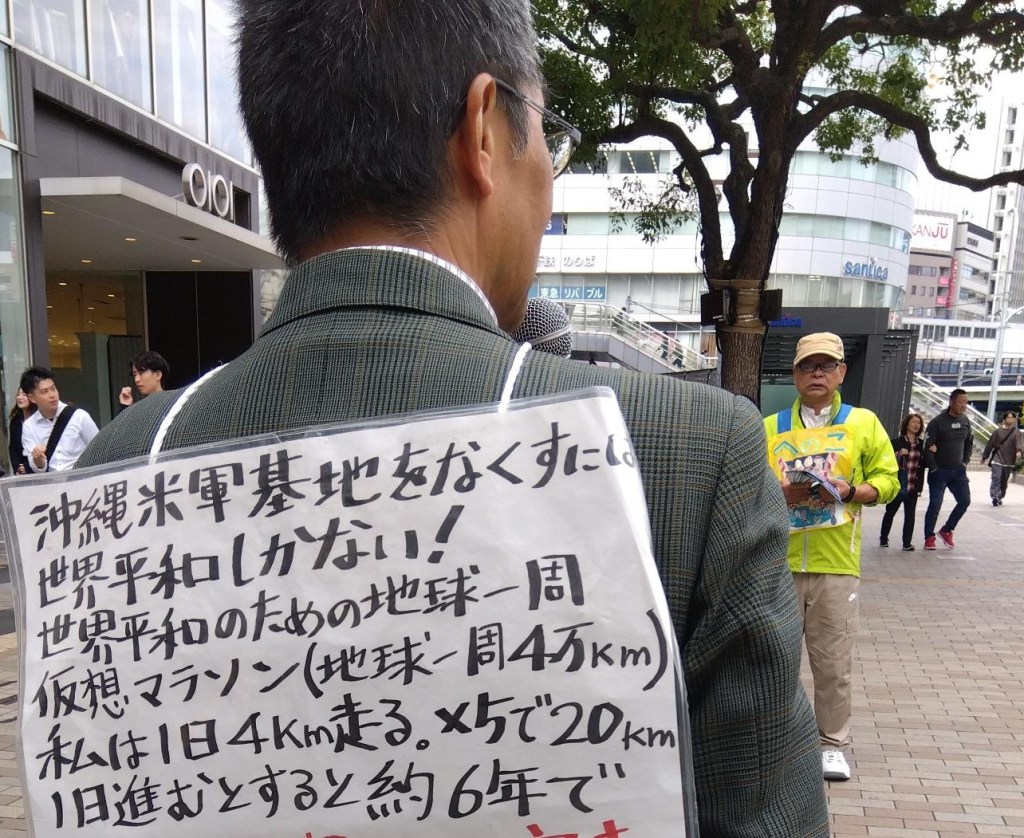 OIOI
鉄 のりば
東急リバブル
santica
KANJU
沖縄米軍基地をなくすには
世界平和しかない!
世界平和のための地球一周
仮想マラソン(地球一周4万km)
私は1日4km走る。×5で20km
1日進むとすると約6年で